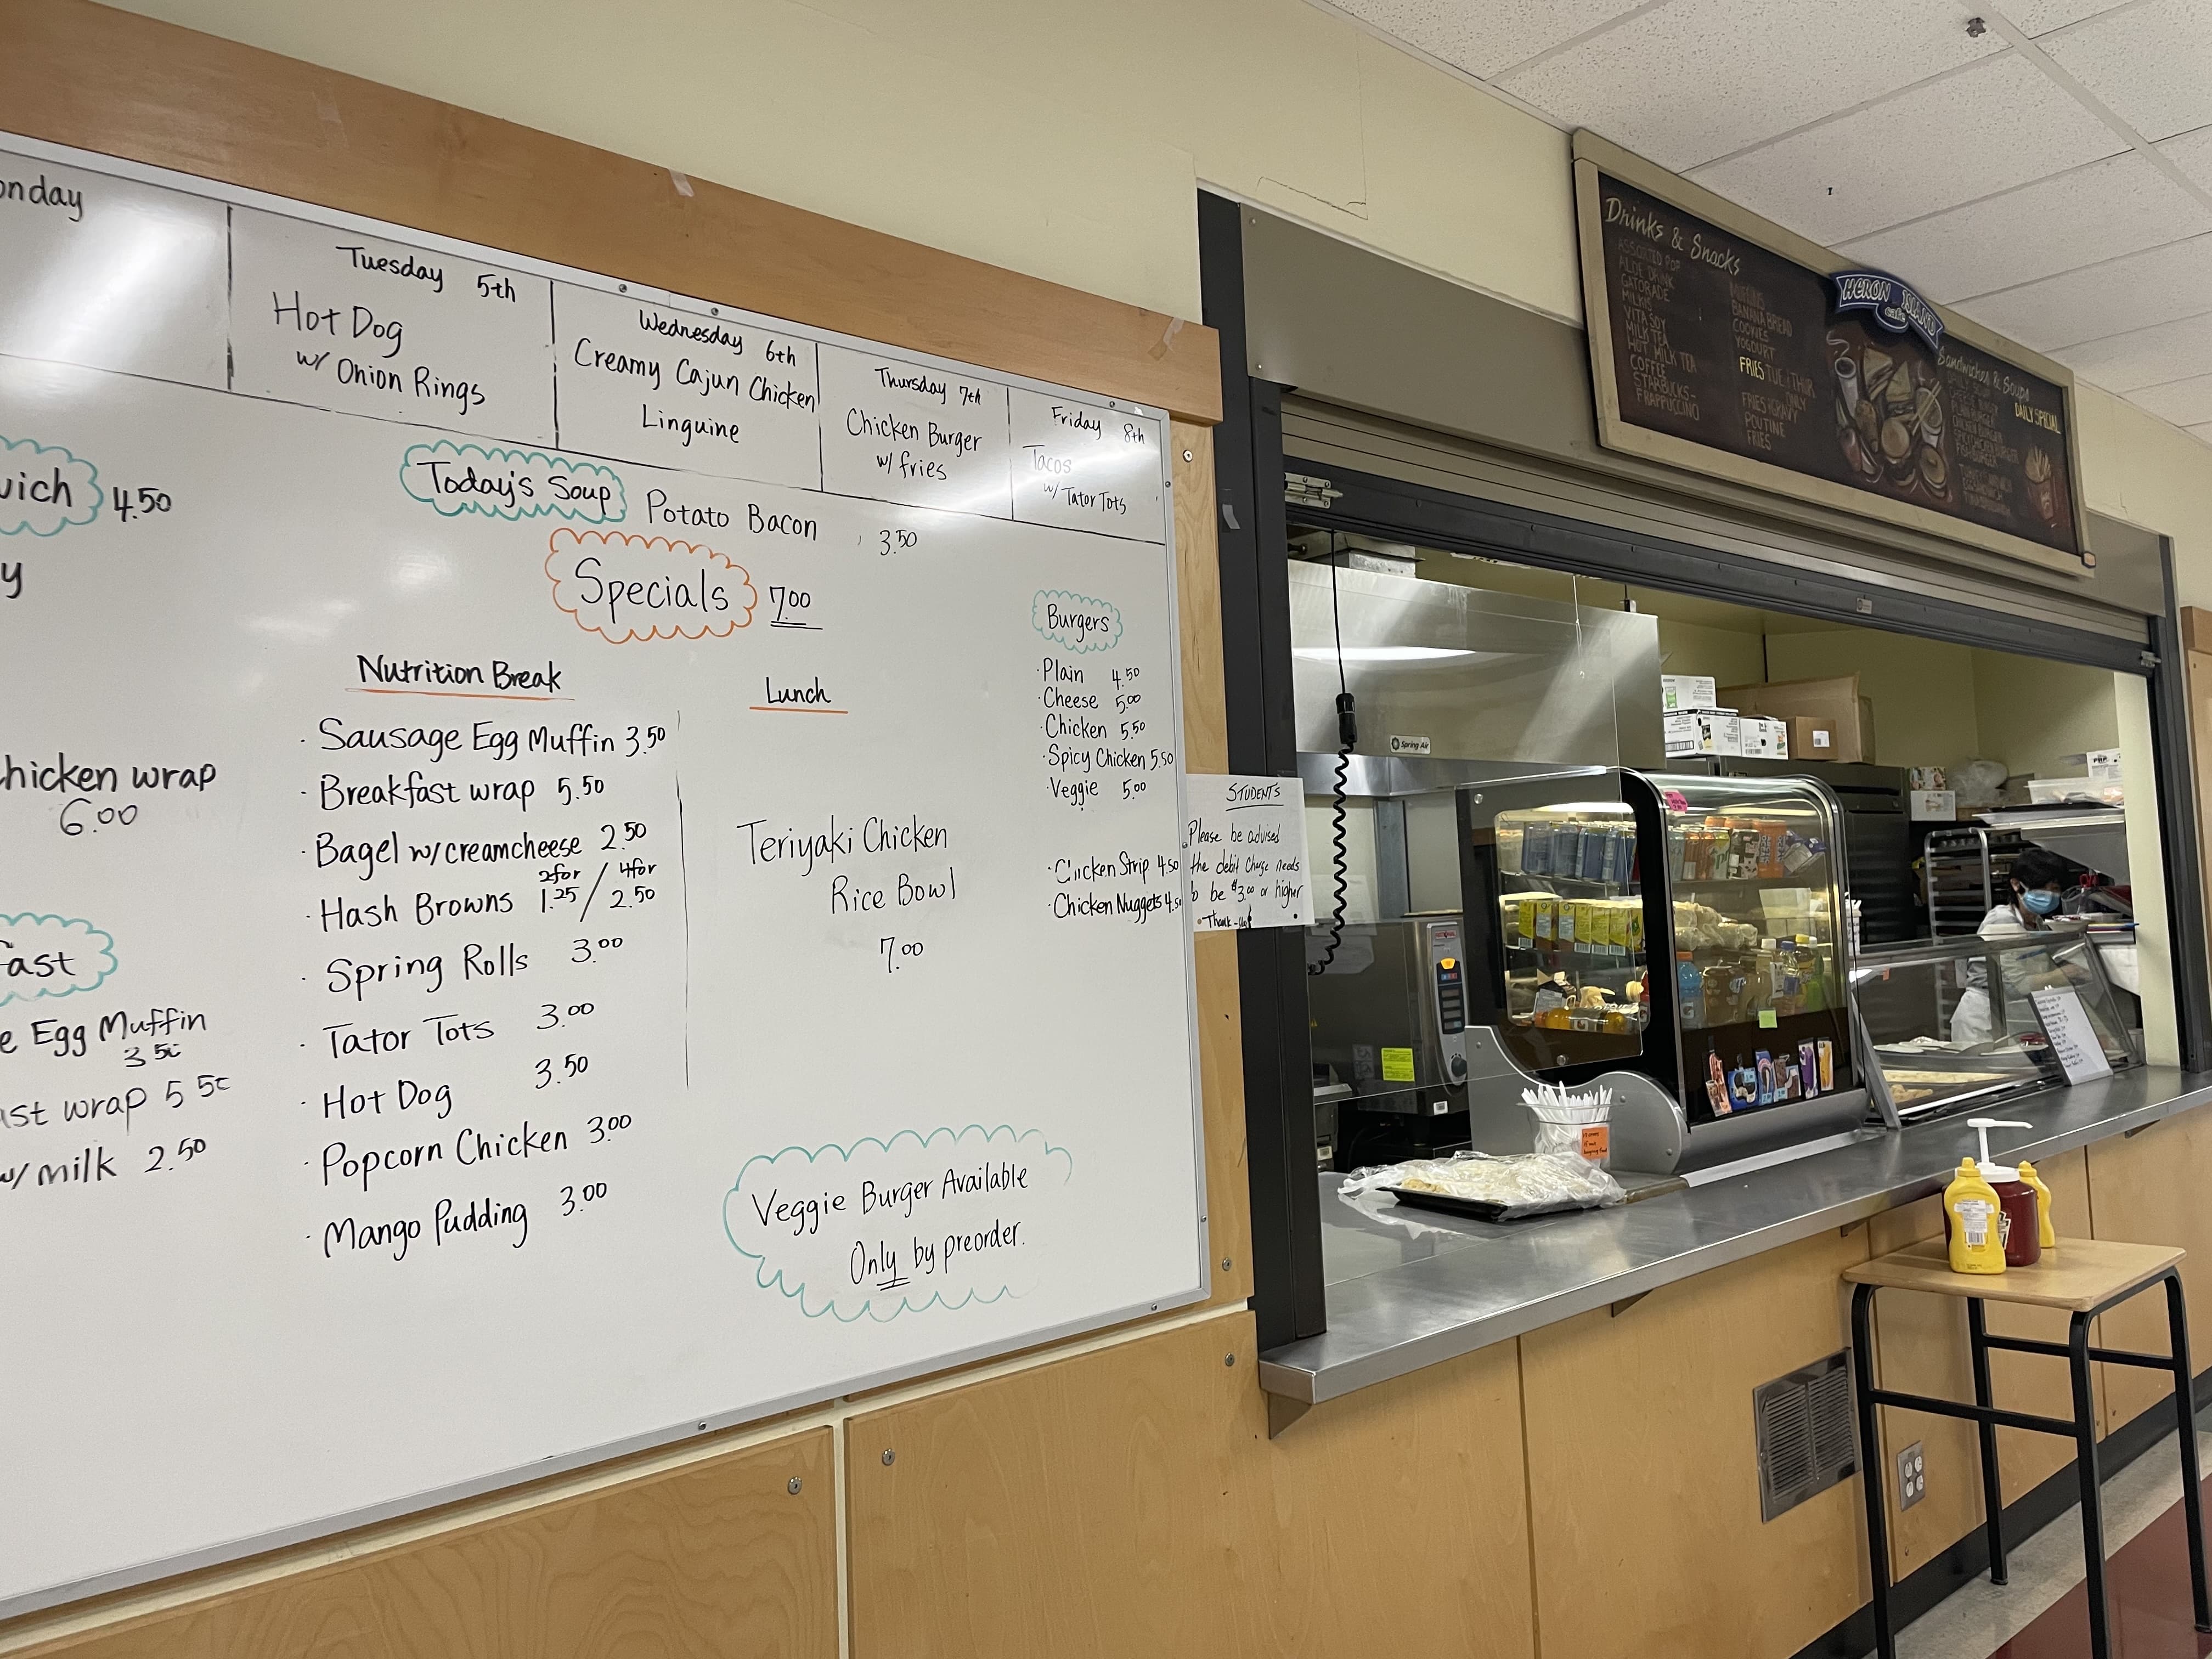 onday
Tuesday 5th
Hot Dog
w/ Onion Rings
Wednesday 6th
Creamy Cajun Chicken
Linguine
Thursday 7th
Chicken Burger
w/ fries
Friday 8th
Tacos
w/ Tator Tots
wich 4.50
y
hicken wrap
6.00
ast
e Egg Muffin
3.50
ast wrap 5.50
w/ milk 2.50
Today's Soup Potato Bacon 3.50
Specials 7.00
Nutrition Break
· Sausage Egg Muffin 3.50
· Breakfast wrap 5.50
· Bagel w/ creamcheese 2.50
· Hash Browns 2for 1.25 / 4for 2.50
· Spring Rolls 3.00
· Tator Tots 3.00
· Hot Dog 3.50
· Popcorn Chicken 3.00
· Mango Pudding 3.00
Lunch
Teriyaki Chicken
Rice Bowl
7.00
Veggie Burger Available
Only by preorder.
Burgers
· Plain 4.50
· Cheese 5.00
· Chicken 5.50
· Spicy Chicken 5.50
· Veggie 5.00
· Chicken Strip 4.50
· Chicken Nuggets 4.50
STUDENTS
Please be advised
the debit charge needs
to be $3.00 or higher
Thank-you
Drinks & Snacks
ASSORTED POP
ALOE DRINK
GATORADE
MILKIS
VITA SOY
MILK TEA
HOT MILK TEA
COFFEE
STARBUCKS -
FRAPPUCCINO
MUFFINS
BANANA BREAD
COOKIES
YOGOURT
FRIES TUE & THUR
ONLY
FRIES & GRAVY
POUTINE
FRIES
HERON ISLAND
cafe
Sandwiches & Soups
DAILY SPECIAL
Spring Air